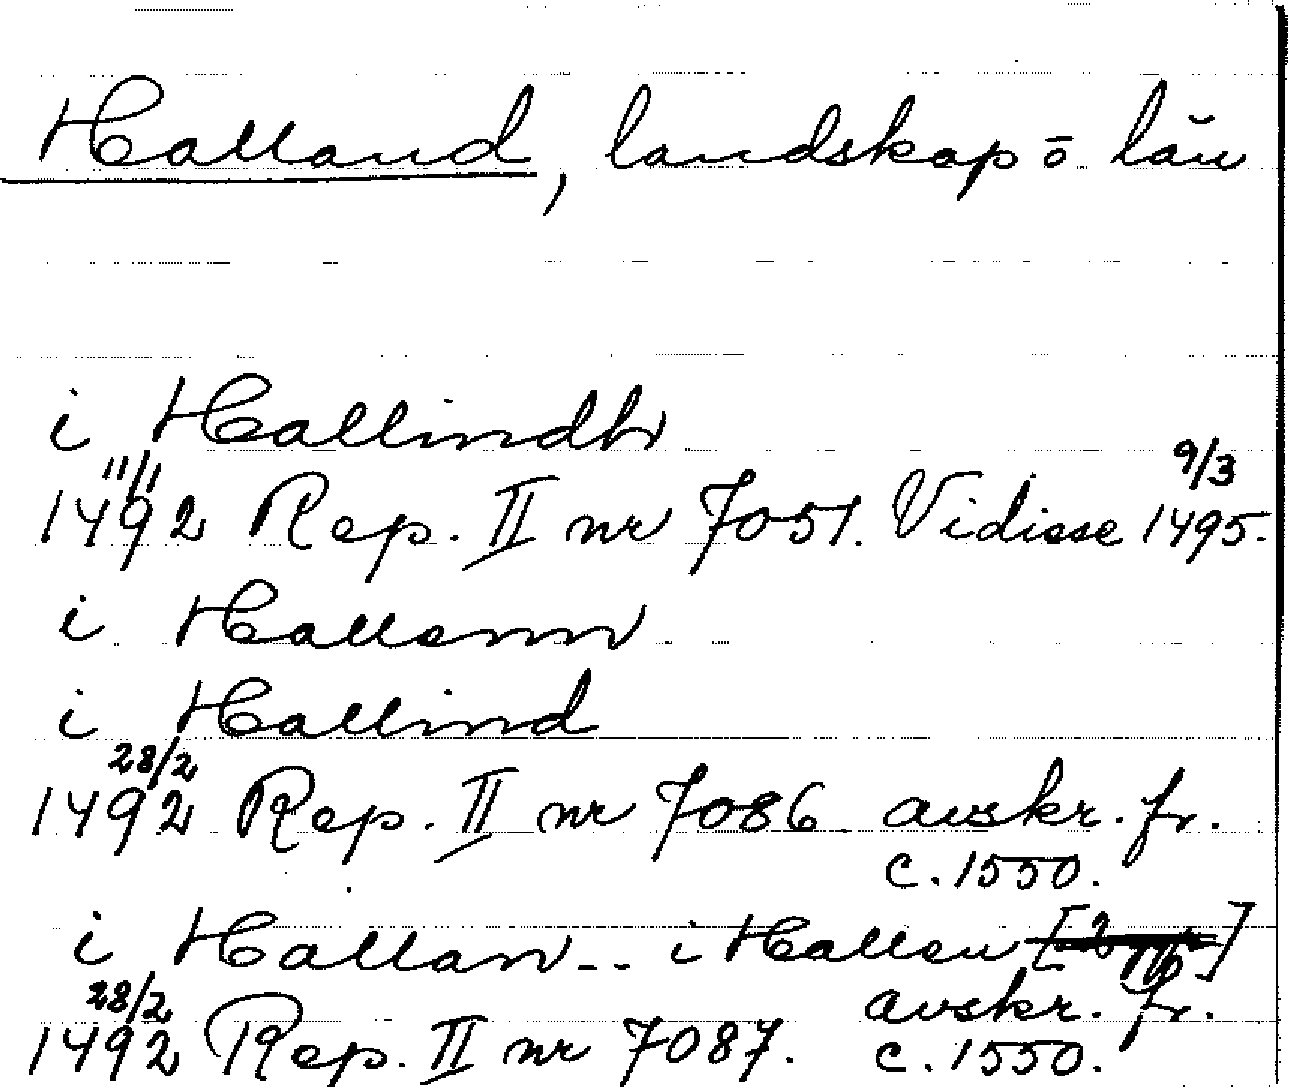 Halland, landskap ō län
i Hallindh
11/11 1492 Rep. II nr 7051. Vidisse 9/3 1495.
i Hallenn
i Hallind
28/2 1492 Rep. II nr 7086 avskr. fr.
c. 1550.
i Hallan -- i Hallen [ ]
28/2 avskr. fr.
1492 Rep. II nr 7087. c. 1550.